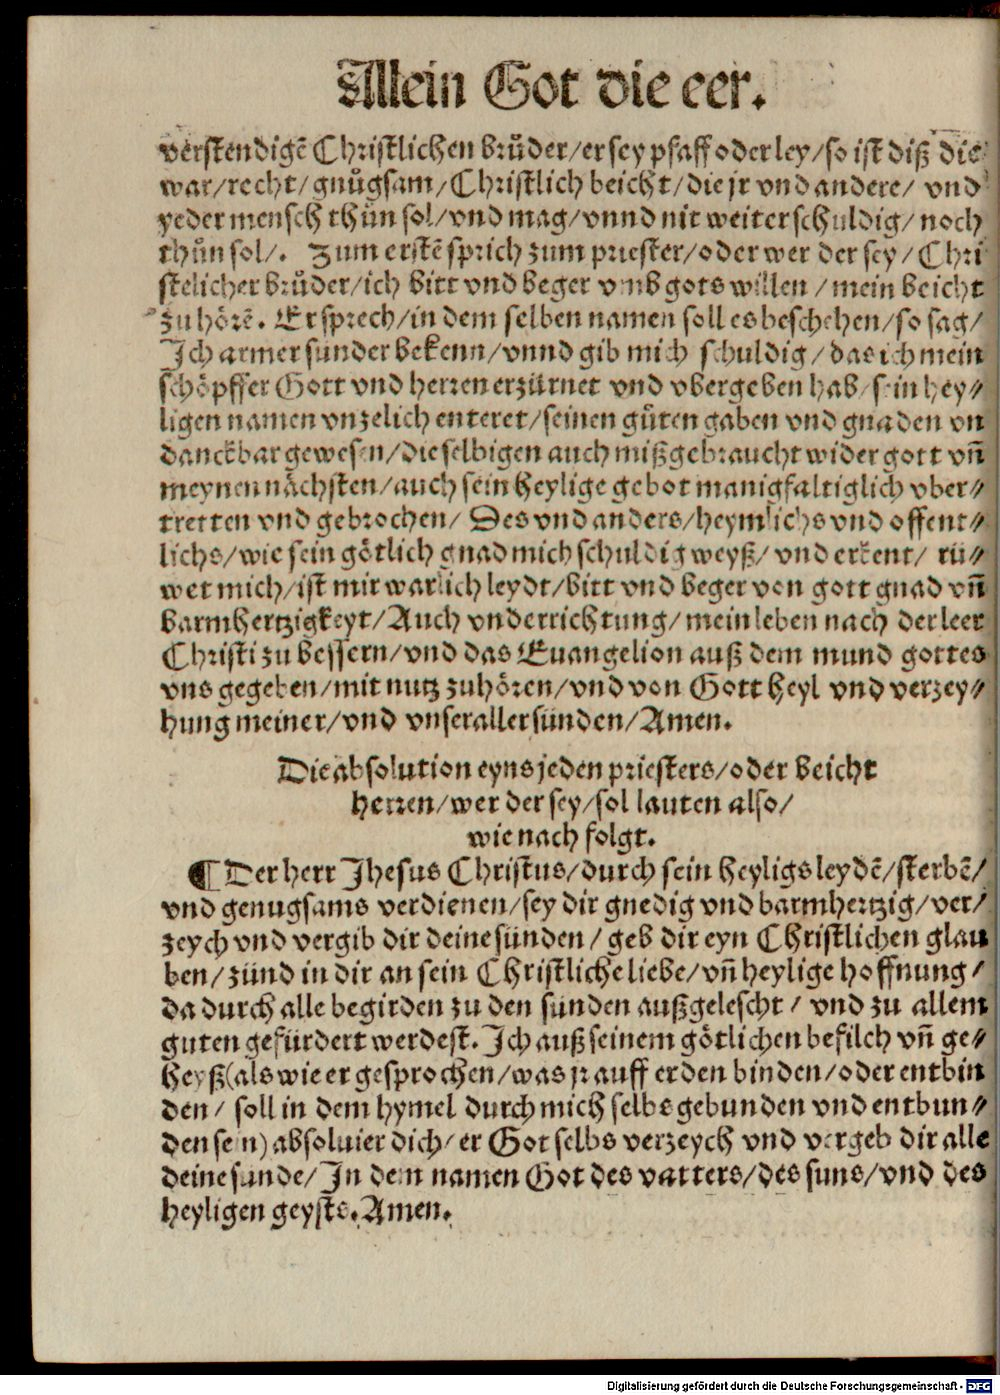 Allein Got die eer.
verstendigē Christlichen bruͦder/er sey pfaff oder ley/so ist diß die
war/recht/gnuͦgsam/Christlich beicht/die jr vnd andere/ vnd
yeder mensch thuͦn sol/vnd mag/vnnd nit weiter schuldig/noch
thuͦn sol/. Zum erstē sprich zum priester/oder wer der sey/Chri
stelicher bruͦder/ich bitt vnd beger vmb gots willen /mein beicht
zu hoͤrē. Er sprech/in dem selben namen soll es beschehen/so sag/
Ich armer sunder bekenn/vnnd gib mich schuldig/das ich mein
schoͤpffer Gott vnd herren erzürnet vnd vbergeben hab/sein hey⸗
ligen namen vnzelich enteret/seinen guͦten gaben vnd gnaden vn
danckbar gewesen/die selbigen auch mißgebraucht wider gott vñ
meynen naͤchsten/auch sein heylige gebot manigfaltiglich vber⸗
tretten vnd gebrochen/ Des vnd anders/heymlichs vnd offent⸗
lichs/wie sein goͤtlich gnad mich schuldig weyß/vnd erkent/ rü⸗
wet mich/ist mir warlich leydt/bitt vnd beger von gott gnad vñ
barmhertzigkeyt/Auch vnderrichtung/mein leben nach der leer
Christi zu bessern/vnd das Euangelion auß dem mund gottes
vns gegeben/mit nutz zuhoͤren/vnd von Gott heyl vnd verzey⸗
hung meiner/vnd vnser aller sünden/Amen.
Die absolution eyns jeden priesters/oder beicht
herren/wer der sey/sol lauten also/
wie nach folgt.
¶ Der herr Jhesus Christus/durch sein heyligs leydē/sterbē/
vnd genugsams verdienen/sey dir gnedig vnd barmhertzig/ver/
zeych vnd vergib dir deine sünden/geb dir eyn Christlichen glau
ben/zünd in dir an sein Christliche liebe/vñ heylige hoffnung/
da durch alle begirden zu den sunden außgelescht/ vnd zu allem
guten gefürdert werdest. Ich auß seinem goͤtlichen befilch vñ ge⸗
heyß(als wie er gesprochen/was jr auff erden binden/oder entbin
den/ soll in dem hymel durch mich selbs gebunden vnd entbun⸗
den sein) absoluier dich/er Got selbs verzeych vnd vergeb dir alle
deine sunde/In dem namen Got des vatters/des suns/vnd des
heyligen geysts. Amen.
Digitalisierung gefördert durch die Deutsche Forschungsgemeinschaft - DFG